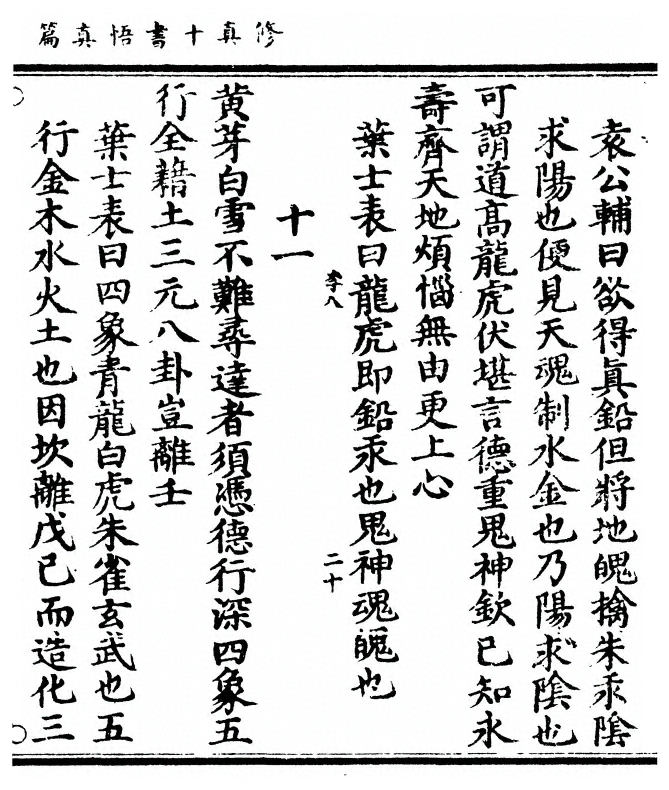 修真十書悟真篇
袁公輔曰欲得眞鉛但將地魄擒朱汞陰
求陽也便見天魂制水金也乃陽求陰也
可謂道高龍虎伏堪言德重鬼神欽已知永
壽齊天地煩惱無由更上心
葉士表曰龍虎即鉛汞也鬼神魂魄也
李八
二十
十一
黄芽白雪不難尋達者須憑德行深四象五
行全藉土三元八卦豈離壬
葉士表曰四象青龍白虎朱雀玄武也五
行金木水火土也因坎離戊己而造化三